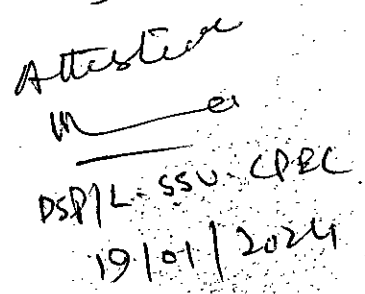 Attested
DSP/L-SSU-CPEC
19/01/2024